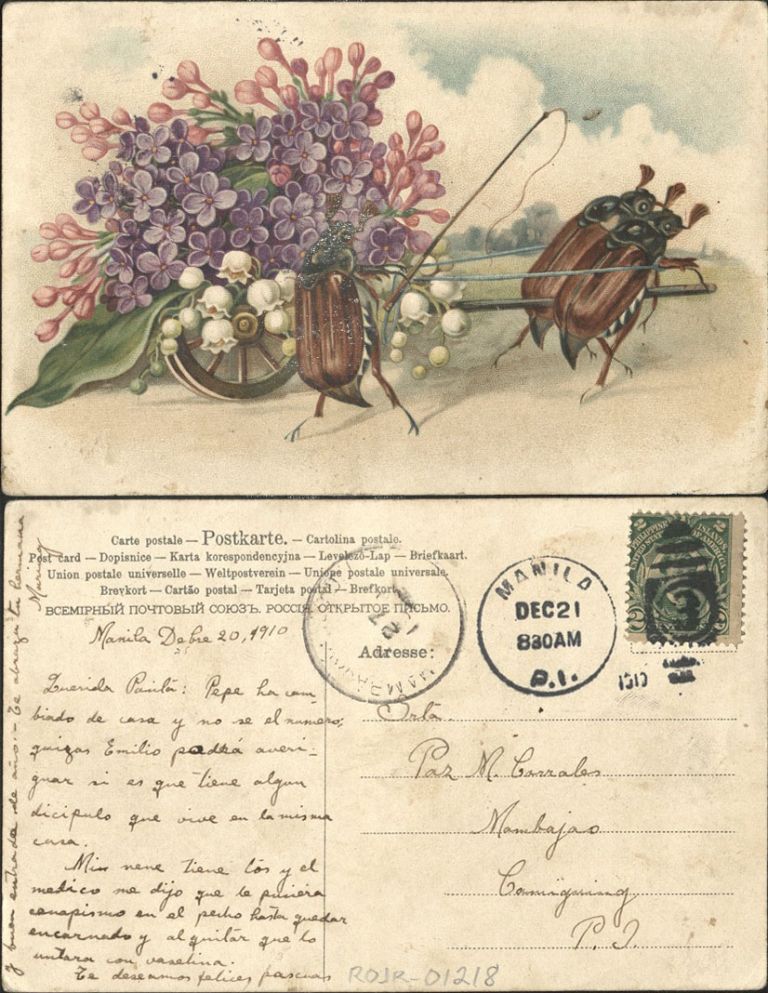 Carte postale — Postkarte. — Cartolina postale.
Post card — Dopisnice — Karta korespondencyjna — Levelező-Lap — Briefkaart.
Union postale universelle — Weltpostverein — Unione postale universale.
Brevkort — Cartão postal — Tarjeta postal — Brefkort
ВСЕМІРНЫЙ ПОЧТОВЫЙ СОЮЗЪ. РОССІЯ. ОТКРЫТОЕ ПИСЬМО.
Manila Debre 20, 1910
Querida Pacita: Pepe ha cam-
biado de casa y no se el numero;
quizas Emilio podrá averi-
guar si es que tiene algun
dicipulo que vive en la misma
casa.
Mi nene tiene tos y el
medico me dijo que le pusiera
cenapismo en el pecho hasta quedar
encarnado y al quitár que lo
untara con vaselina.
Te deseamos felices pascuas
y buen entrada de año.- Te abraza tu hermana
MANILA
DEC 21
830AM
P.I.
1910
PHILIPPINE ISLANDS
UNITED STATES OF AMERICA
2 2
Adresse:
Srta.
Paz M. Corrales
Mambajao
Camiguing
P. I.
ROJR-01218